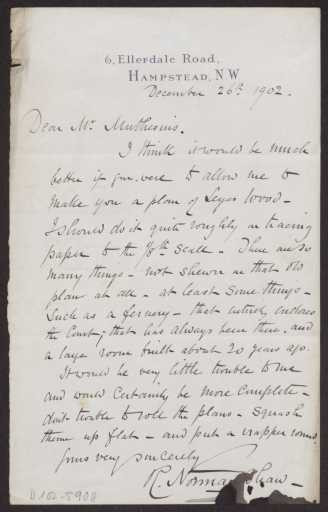 6, Ellerdale Road,
Hampstead, N W
December 26th 1902.
Dear Mr. Muthesius.
I think it would be much
better if you were to allow me to
make you a plan of Leyes Wood -
I should do it quite roughly on tracing
paper to the 1/8th scale - There are so
many things - not shewn on that old
plan at all - at least some things -
Such as a fernery - that entirely encloses
the Court; that has always been there, and
a large room built about 20 years ago.
It would be very little trouble to me
and would certainly be more complete -
don't trouble to roll the plans - squash
them up flat - and put a wrapper round.
yours very sincerely
R. Norman Shaw -
D 102-5908